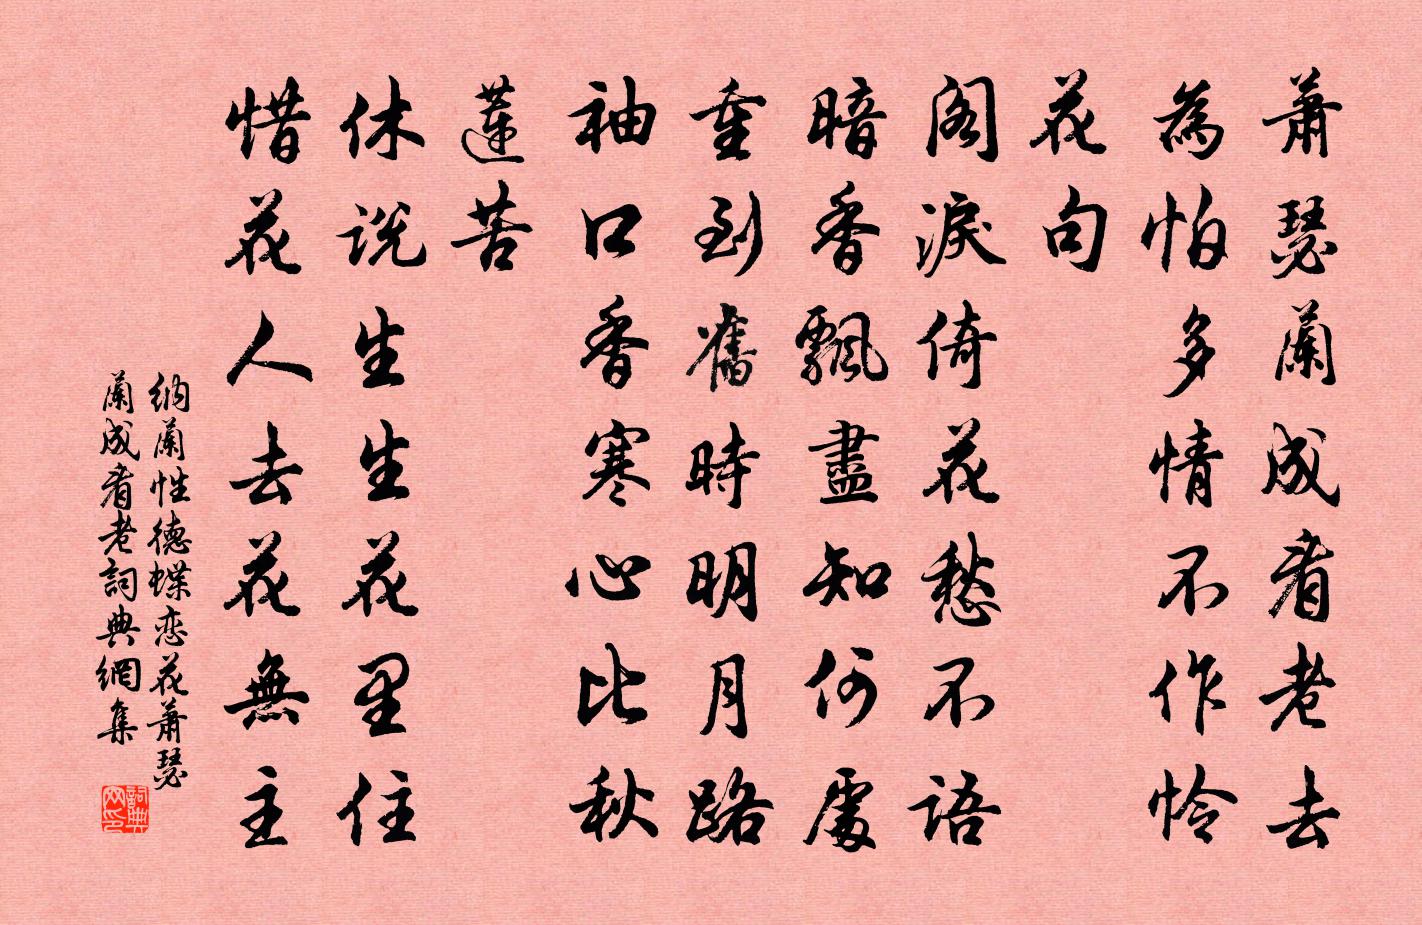 蕭瑟蘭成看老去
為怕多情不作怜
花句
阁淚倚花愁不語
暗香飄盡知何處
重到舊時明月路
袖口香寒心比秋
蓮苦
休说生生花里住
惜花人去花無主
纳蘭性德蝶恋花蕭瑟
蘭成看老詞典網集
詞典
网印